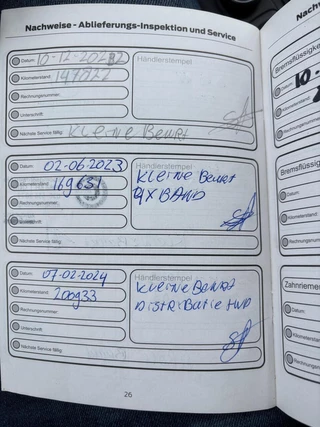 Nachweise - Ablieferungs-Inspektion und Service
Datum: 10-12-2022
Händlerstempel
Kilometerstand: 147022
Rechnungsnummer:
Unterschrift:
Nächste Service fällig: Kleine Beurt
Datum: 02-06-2023
Händlerstempel
Kilometerstand: 169651
Kleine Beurt
Rechnungsnummer:
4X BAND
Unterschrift:
Nächste Service fällig:
Datum: 07-02-2024
Händlerstempel
Kilometerstand: 200933
Kleine Beurt
Rechnungsnummer:
DISTRIBUTIE
Unterschrift:
Nächste Service fällig:
26
Nachw
Bremsflüssigke
Datum:
10
Kilometerstand:
Bremsflüssig
Datum:
Kilometerstand
Zahnriemen
Datum: